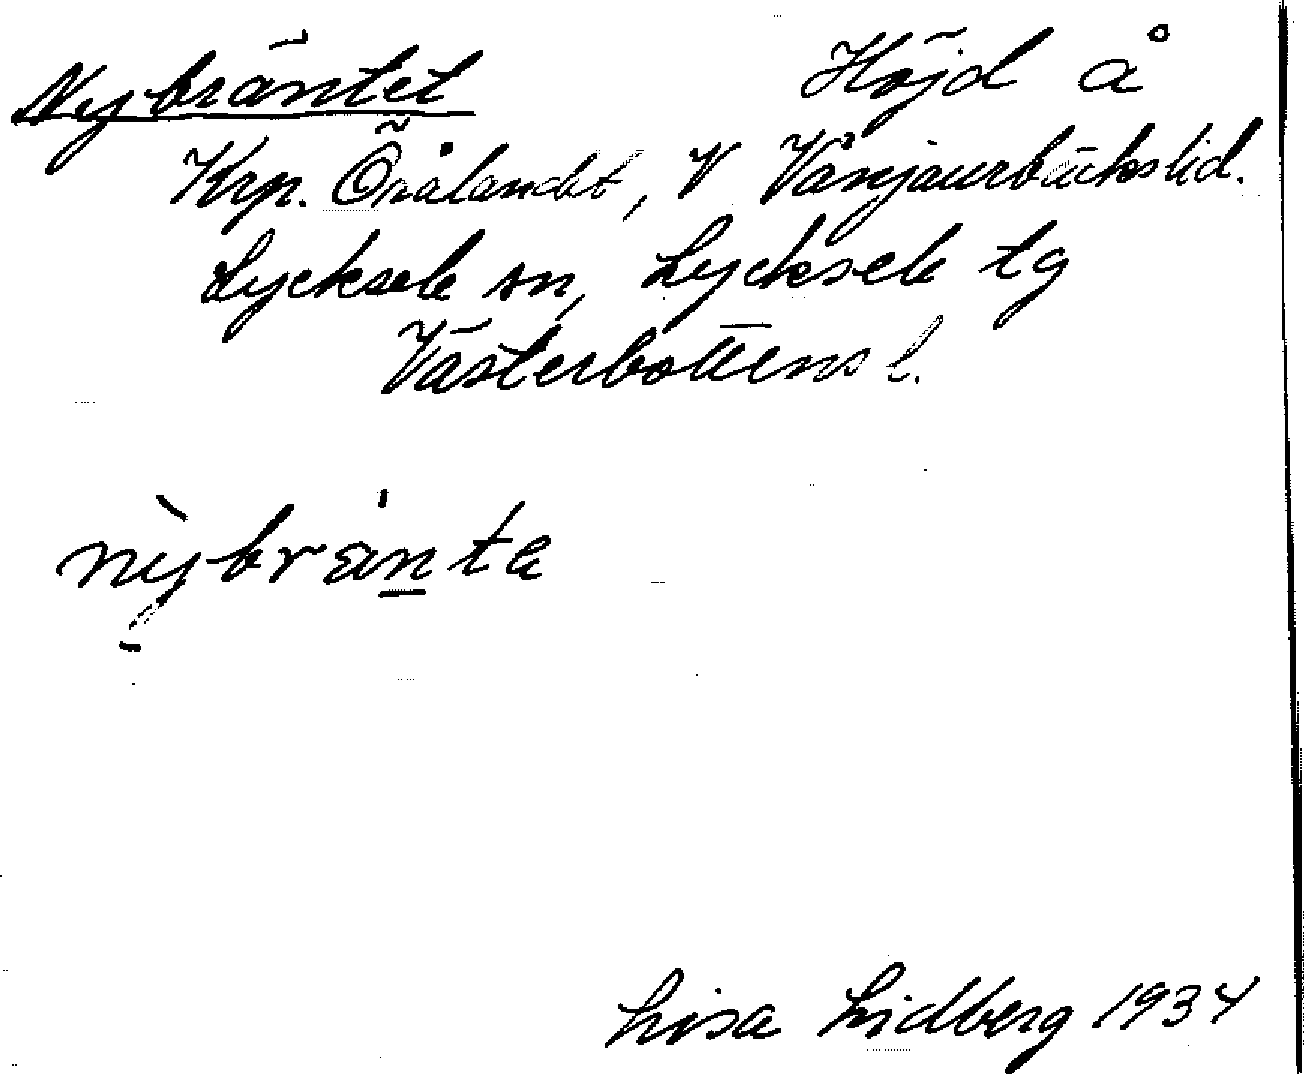 Nybräntet Höjd å
Krp. Örålandet, V Vänjaurbäckslid.
Lycksele sn, Lycksele tg
Västerbottens l.
nỳbränta
Lisa Lidberg 1934